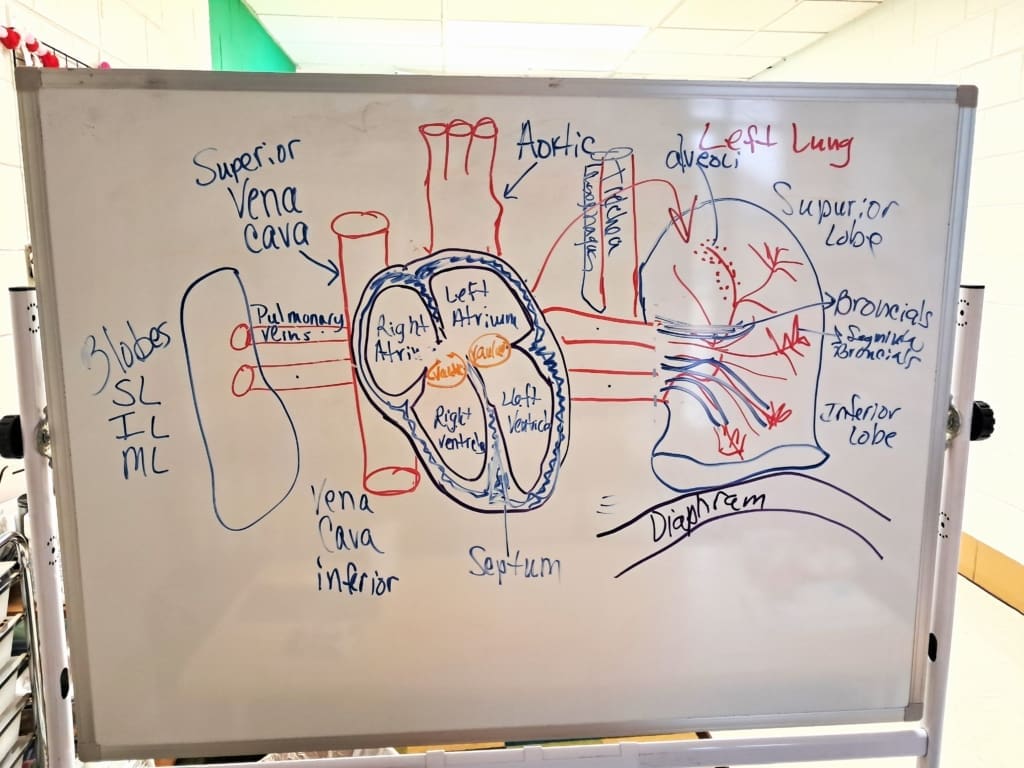 Superior
Vena
cava
Aortic
Left Lung
alveoli
Trachea
Supurior
Lobe
Broncials
Broncials
Inferior
lobe
3 lobes
SL
IL
ML
Pulmonary
veins
Right
Left
Atrium
Valve
Right
Left
Diaphram
Vena
Cava
inferior
Septum